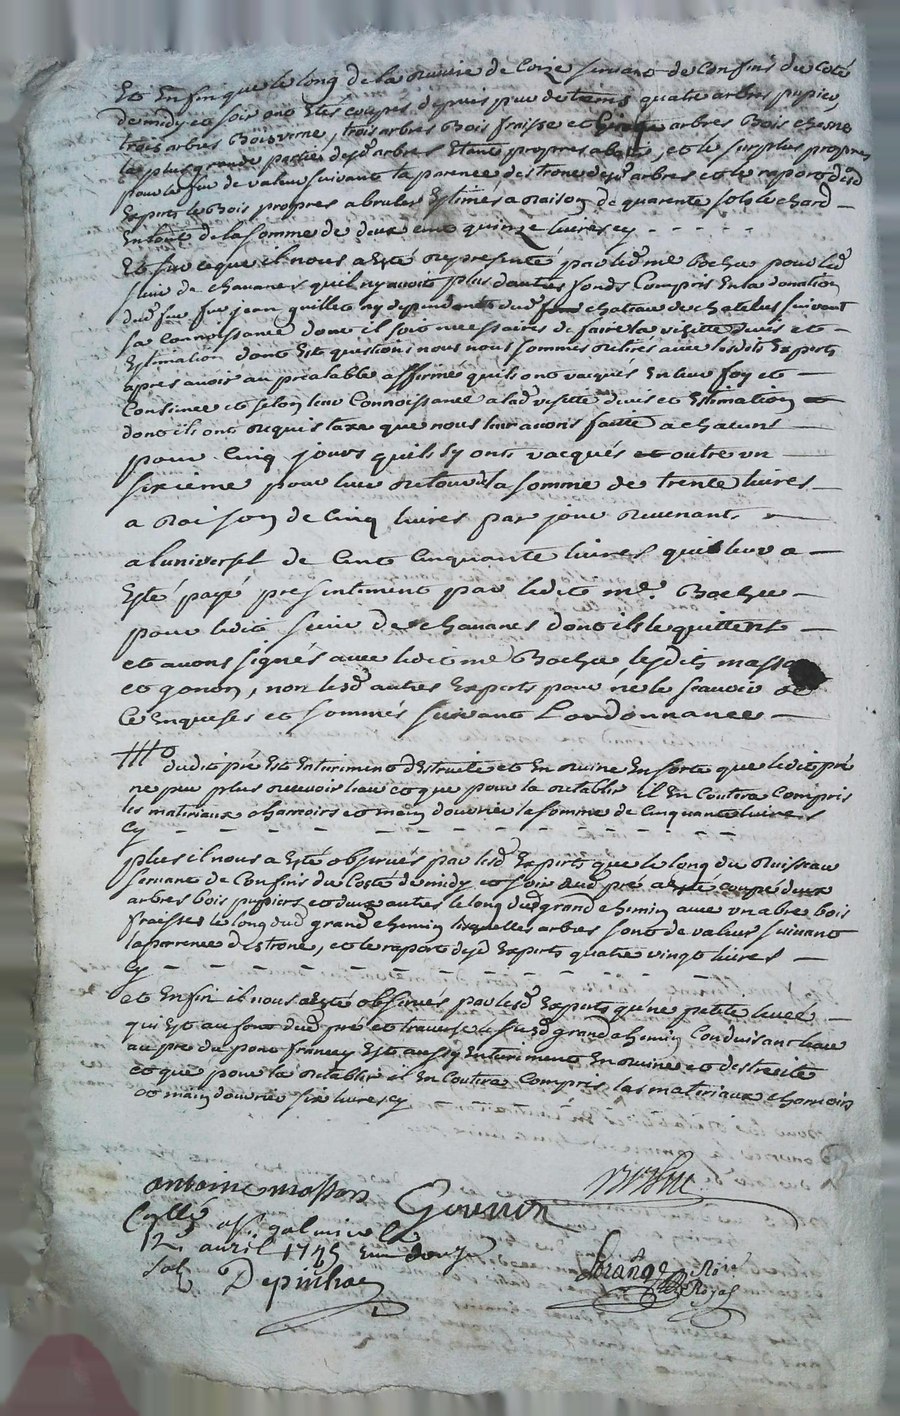 Et Enfin que le long de la riviere de Coize servant de Confins du coté
de midy et soir ont Etés coupés depuis peu de tems quatre arbres pupier,
trois arbres Bois verne, trois arbres Bois fraisse et Cinq arbres Bois chesne
la plus grande partie desd arbres Etant propres a , et le surplus propres
pour le feu de valeur suivant laparence des trones desd arbres et le raport desd
Experts le Bois propres a bruler Estimés a raison de quarente sols le chard
En tout de la somme de deux cent quinze livres cy
Et sur ceque il nous a Esté representé par led me Bochu pour led
sieur de chavanes quil ny avoit plus dautres fonds Compris En la donation
dud feu sr jean guillet ny dependents dud chateau de chatelus suivant
sa Connoissance dont il soit necessaires de faire la visitte devis et
Estimation dont Est question nous nous sommes retirés avec lesdits Experts
apres avoir au prealable affirmés quils ont vacqués En leur foy et
Consience et selon leur Connoissance a lad visitte devis et Estimation
dont ils ont requis taxe que nous leur avons faitte a chacuns
pour Cinq jours quils y ont vacqués et outre un
sixieme pour leur retour la somme de trente livres
a Raison de Cinq livres par jour Revenant
a luniversel de Cent Cinquante livres qui leur a
Esté payé presentiment par ledit me Bochu
pour ledit sieur de chavanes dont ils le quittent
et avons signés avec ledit me Bochu lesdits masson
et gonon, non lesd autres Experts pour ne le scavoir de
Ce Enqueses et sommés suivant Lordonnance
dudit pré Est Entierement destruite et En ruine En sorte que ledit pré
ne peu plus recevoir leau et que pour la retablir il En Coutera Compris
les materiaux charrois et main douvrier la somme de Cinquante livres
cy
plus il nous a Esté observés par lesd Experts que le long du Ruisseau
servant de Confins du Costé de midy et soir dud pré a esté coupé deux
arbres bois pupiers et deux autres le long dud grand chemin avec un abre bois
fraisse le long dud grand chemin lesquelles arbres sont de valeur suivant
laparrence des trone, et le raport desd Experts quatre vingt livres
cy
et Enfin il nous a Esté observés par lesd Experts qu'une petite levée
qui Est au fond dud pré et traverse le susd grand chemin Conduisant leau
au pre du pont francey Est aussy Entierement En ruine et destruite
et que pour la retablir il En Coutera Compris les materiaux charrois
et main douvrier six livres cy
antoine masson
Gounon
Bochu
Collé a st galmier le
12 avril 1745 Reçu douze
sols Depinhac
Lorange Nore
Royal